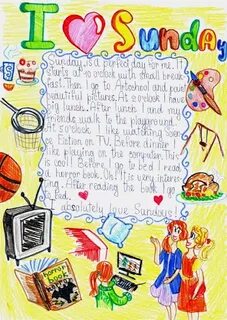 I ❤ Sunday
Sunday is a perfect day for me. It
starts at 10 o'clock with small break
fast. Then I go to Artschool and paint
beautiful pictures. At 2 o'clock I
lunch. After lunch I and my
friends walk to the playground.
At 5 o'clock I like watching Scien
ce Fiction on TV. Before dinner I
like playing on the computer. This
is cool! Before go to bed I read
horror book. Uh! It is very intere
sting. After reading the book I go
to bed.
I absolutely love Sundays!
horror
book